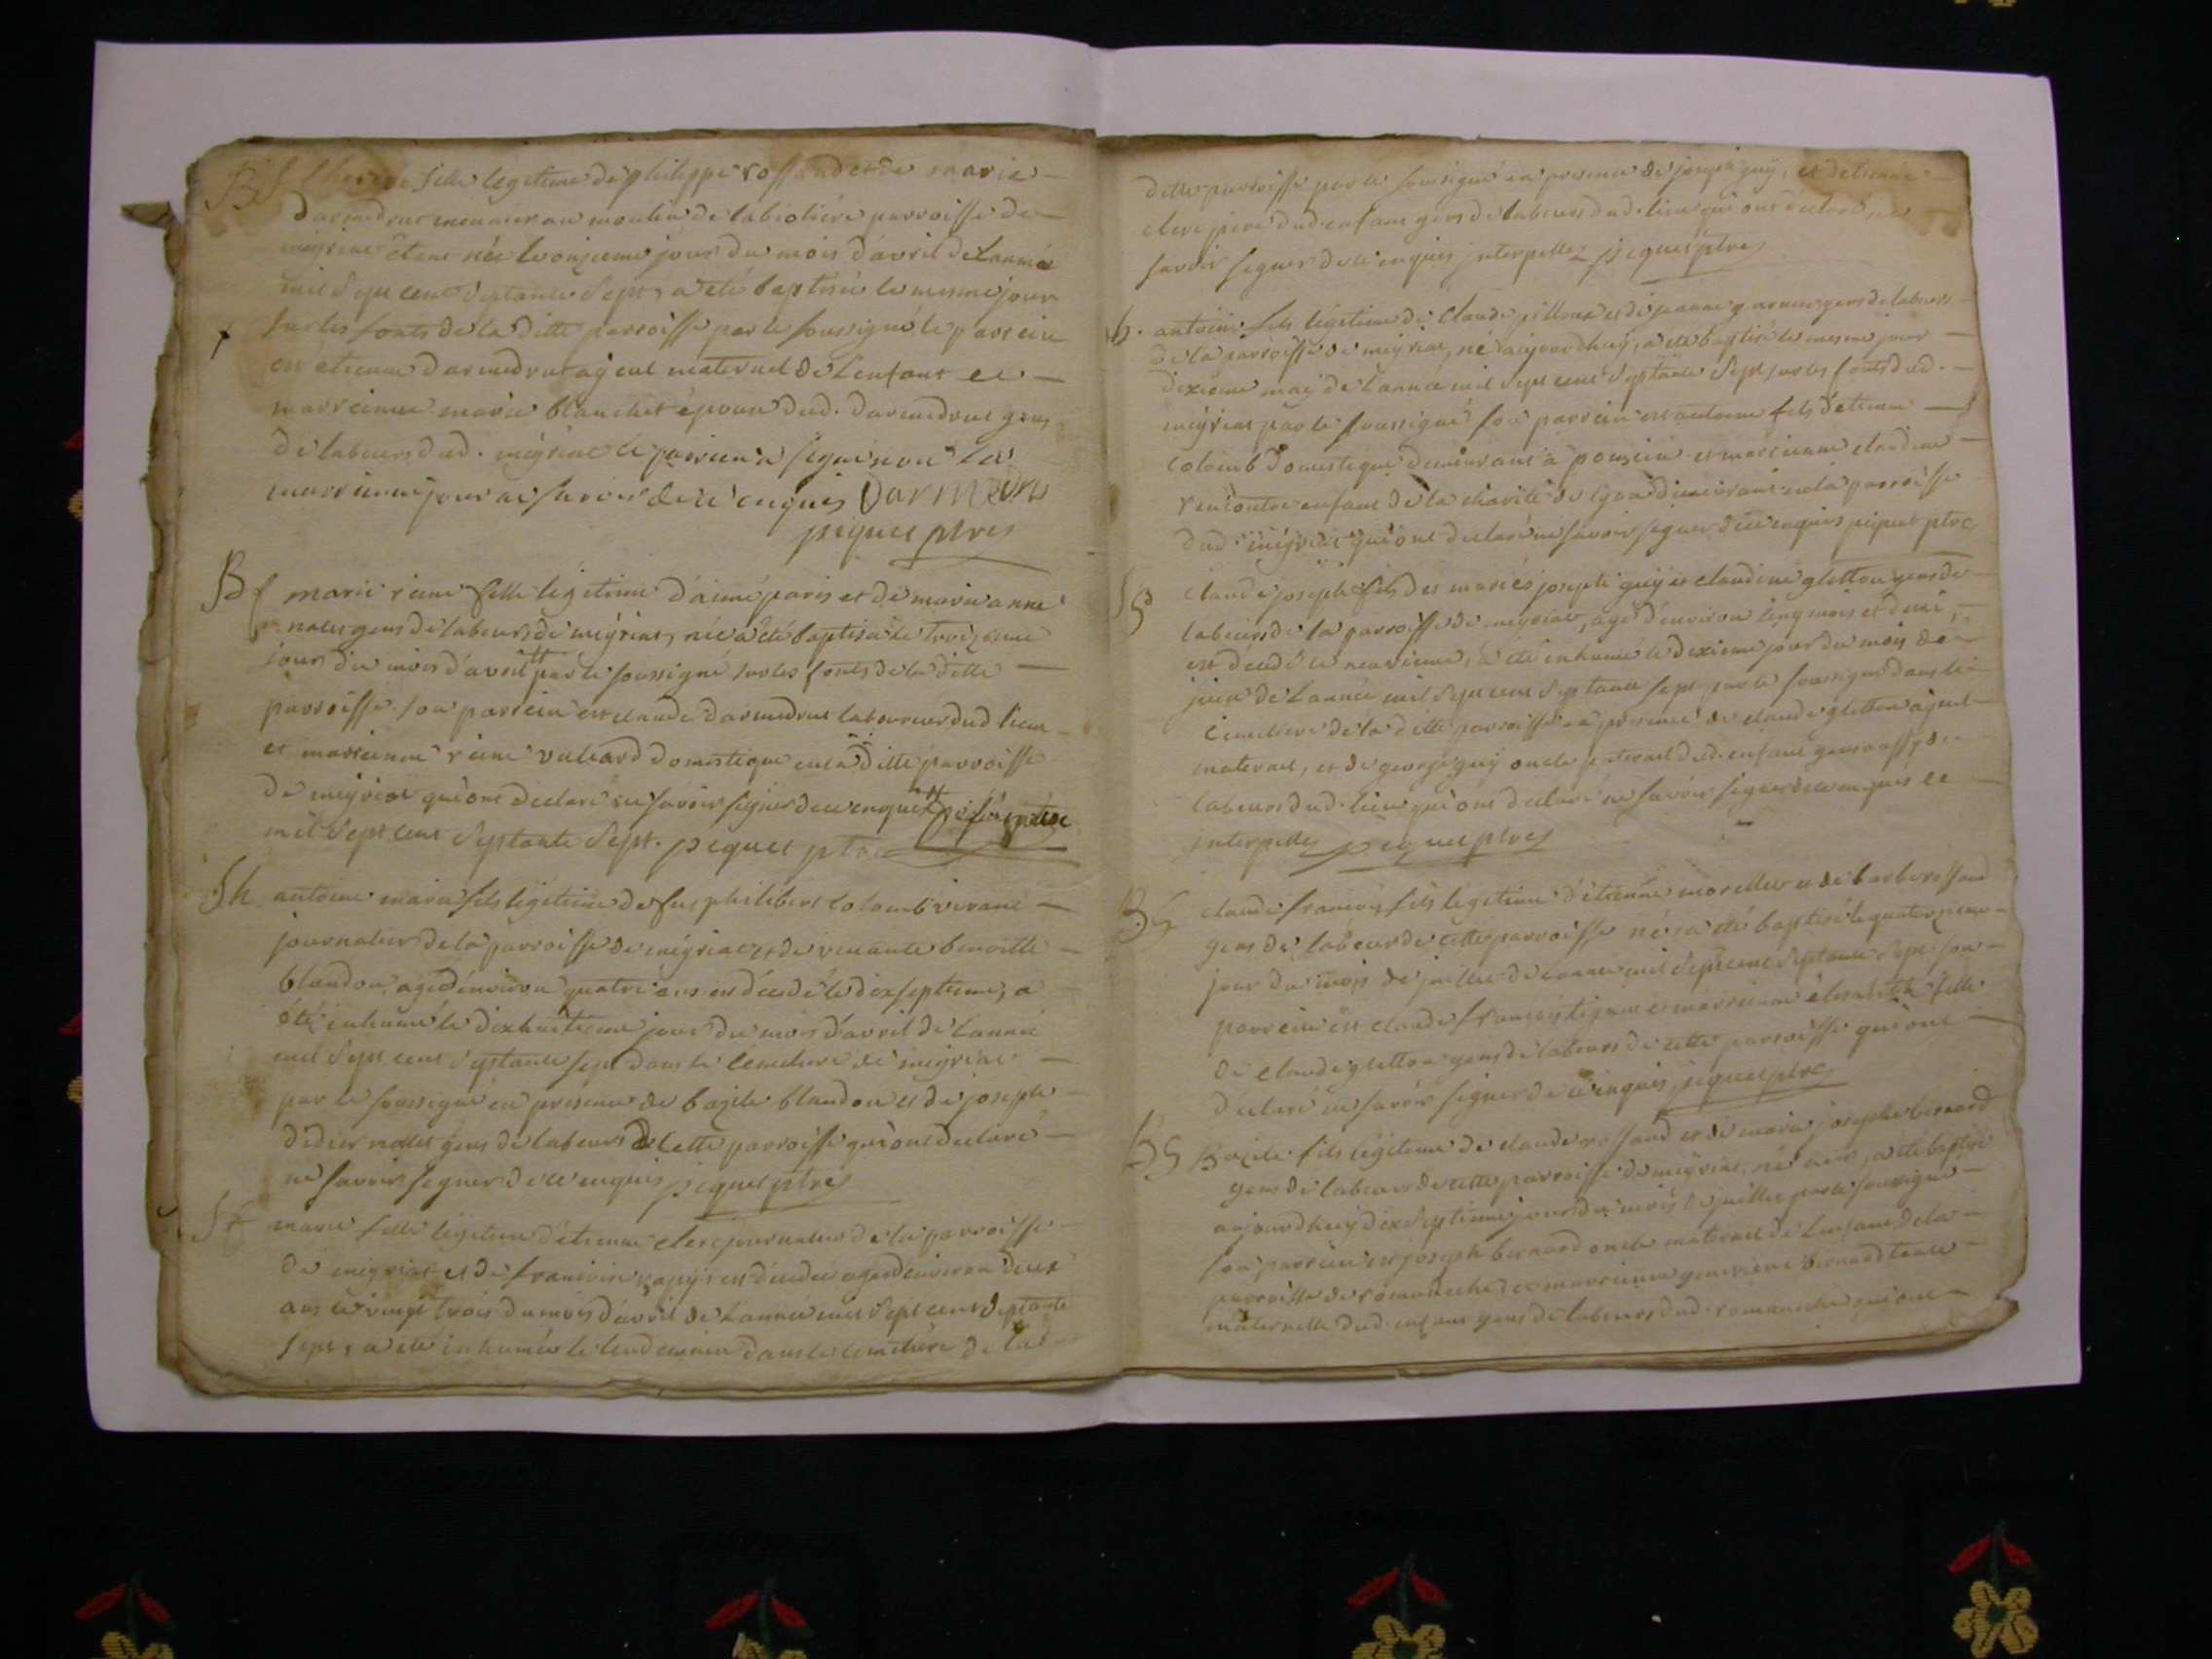 Bf therese fille legitime de philippe rossand et de marie
darmedrut meunier au moulin de la biolière parroisse de
meyriat étant née le onzieme jour du mois d'avril de l'année
mil Sept cent Septante Sept, a été baptisée le mesme jour
sur les fonts de la ditte parroisse par le soussigné le parrein
est etienne darmedrut ayeul maternel de l'enfant et
marreinne marie blanchet épouse dud. darmedrut gens
de labeurs dud. meyriat le parrein a signé non la
marreinne pour ne savoir de ce enquis Darmedru
piquet ptre
Bf marie reine fille légitime d'aimé paris et de marie anne
nalet gens de labeurs de meyriat, née a été baptisée le treizieme
jour du mois d'avril par le soussigné sur les fonts de la ditte
parroisse. son parrein est claude darmedrut laboureur dud lieu
et marreinne reine vuliard domestique en la ditte parroisse
de meyriat qui ont déclaré ne savoir signer de ce enquis
mil Sept cent Septante Sept. piquet ptre
Sh antoine marie fils légitime de feu philibert colomb vivant
journalier de la parroisse de meyriat et de vivante benoitte
blandon, agé d'environ quatre ans est décédé le dixseptieme, a
été inhumé le dixhuitieme jour du mois d'avril de l'année
mil Sept cent Septante Sept dans le cimetiere de meyriat
par le soussigné en presence de bazile blandon et de joseph
didier nalet gens de labeurs de cette parroisse qui ont declaré
ne savoir signer de ce enquis piquet ptre
Sf marie fille légitime d'etienne clerc journalier de la parroisse
de meyriat et de francoise est décédée agée d'environ deux
ans le vingt trois du mois d'avril de l'année mil Sept cent Septante
Sept, a été inhumée le lendemain dans le cimetiere de la
ditte parroisse par le soussigné en presence de joseph guÿ, et d'etienne
clerc pere dud. enfant gens de labeurs dud. lieu qui ont déclaré ne
savoir signer de ce enquis interpellez piquet ptre
b. antoine fils légitime de claude pilloux et de jeanne gens de labeurs
de la parroisse de meyriat, né aujourdhuÿ, a été baptisé le mesme jour
dixieme maÿ de l'année mil Sept cent Septante Sept sur les fonts dud.
meyriat par le soussigné son parrein est antoine fils d'etienne
colomb domestique demeurant a poncin et marreinne claudine
rencontre enfant de la charité de lyon demeurant en la parroisse
dud. meyriat qui ont declaré ne savoir signer de ce enquis piquet ptre
SG claude joseph fils des mariés joseph guÿ et claudine gletton gens de
labeurs de la parroisse de meyriat, agé d'environ cinq mois et demi,
est décédé le neuvieme, a été inhumé le dixieme jour du mois de
juin de l'année mil Sept cent Septante Sept par le soussigné dans le
cimetiere de la ditte parroisse en presence de claude gletton ayeul
maternel, et de george guÿ oncle paternel dud. enfant gens de
labeurs dud. lieu qui ont declaré ne savoir signer de ce enquis et
interpellez piquet ptre
BG claude francois fils legitime d'etienne morellet et de barbe rossand
gens de labeur de cette parroisse né, a été baptisé le quatorzieme
jour du mois de juillet de l'année mil Sept cent Septante Sept son
parrein est claude francois et marreinne elisabeth fille
de claude gletton gens de labeurs de cette parroisse qui ont
declaré ne savoir signer de ce enquis piquet ptre
BG Bazile fils légitime de claude rossand et de marie josephe bernard
gens de labeurs de cette parroisse de meyriat, né hier, a été baptisé
aujourdhuÿ dixSeptieme jour du mois de juillet par le soussigné
son parrein est joseph bernard oncle maternel de l'enfant de la
parroisse de romaneche et marreinne genevieve bernard tante
maternelle dud. enfant gens de labeurs dud. romaneche qui ont